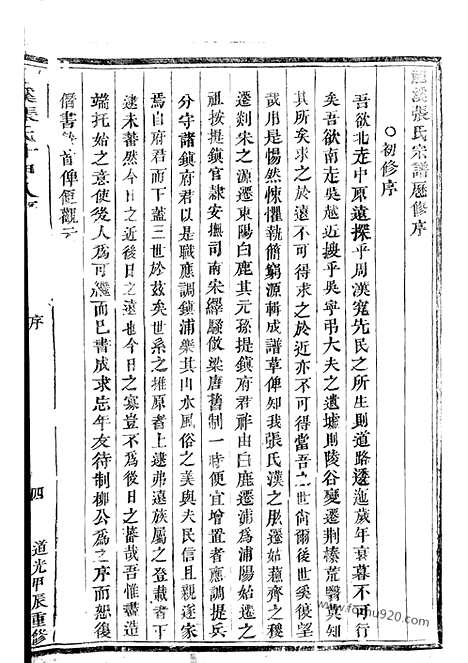 龍溪張氏宗譜歷修序
○初修序
吾欲北走中原遠探乎周漢寬先民之所生則道路逶迤歲年衰暮不可行
矣吾欲南走吳越近搜乎吳寧弔大夫之遺墟則陵谷變遷荊榛荒翳莫知
所求之於遠不可得求之於近亦不可得當吾之世尚爾後世奚從望
哉用是惕然悚懼執簡窮源輯成譜草俾知我張氏漢之所遷始蘓齊之稷
遷剡宋之源遷東陽白鹿其元孫提鎮府君祚由白鹿遷浦為浦陽始遷之
祖按提鎮官隷安撫司南宋繹騷倣梁唐舊制一時便宜增置者應調提兵
分守諸鎮府君以是職應調鎮浦樂其山水風俗之美與夫民信且親遂家
焉自府君而下葢三世於玆矣世系之推原者上逮弗遠族屬之登載者下
逮未蕃然今日之近後日之遠也今日之寡豈不為後日之蕃哉吾惟盡造
端托始之意使後人為可繼而已書成求忘年友待制柳公為之序而後
僭書 首俾便觀云
序
四
道光甲辰重修
www.fohu920.com